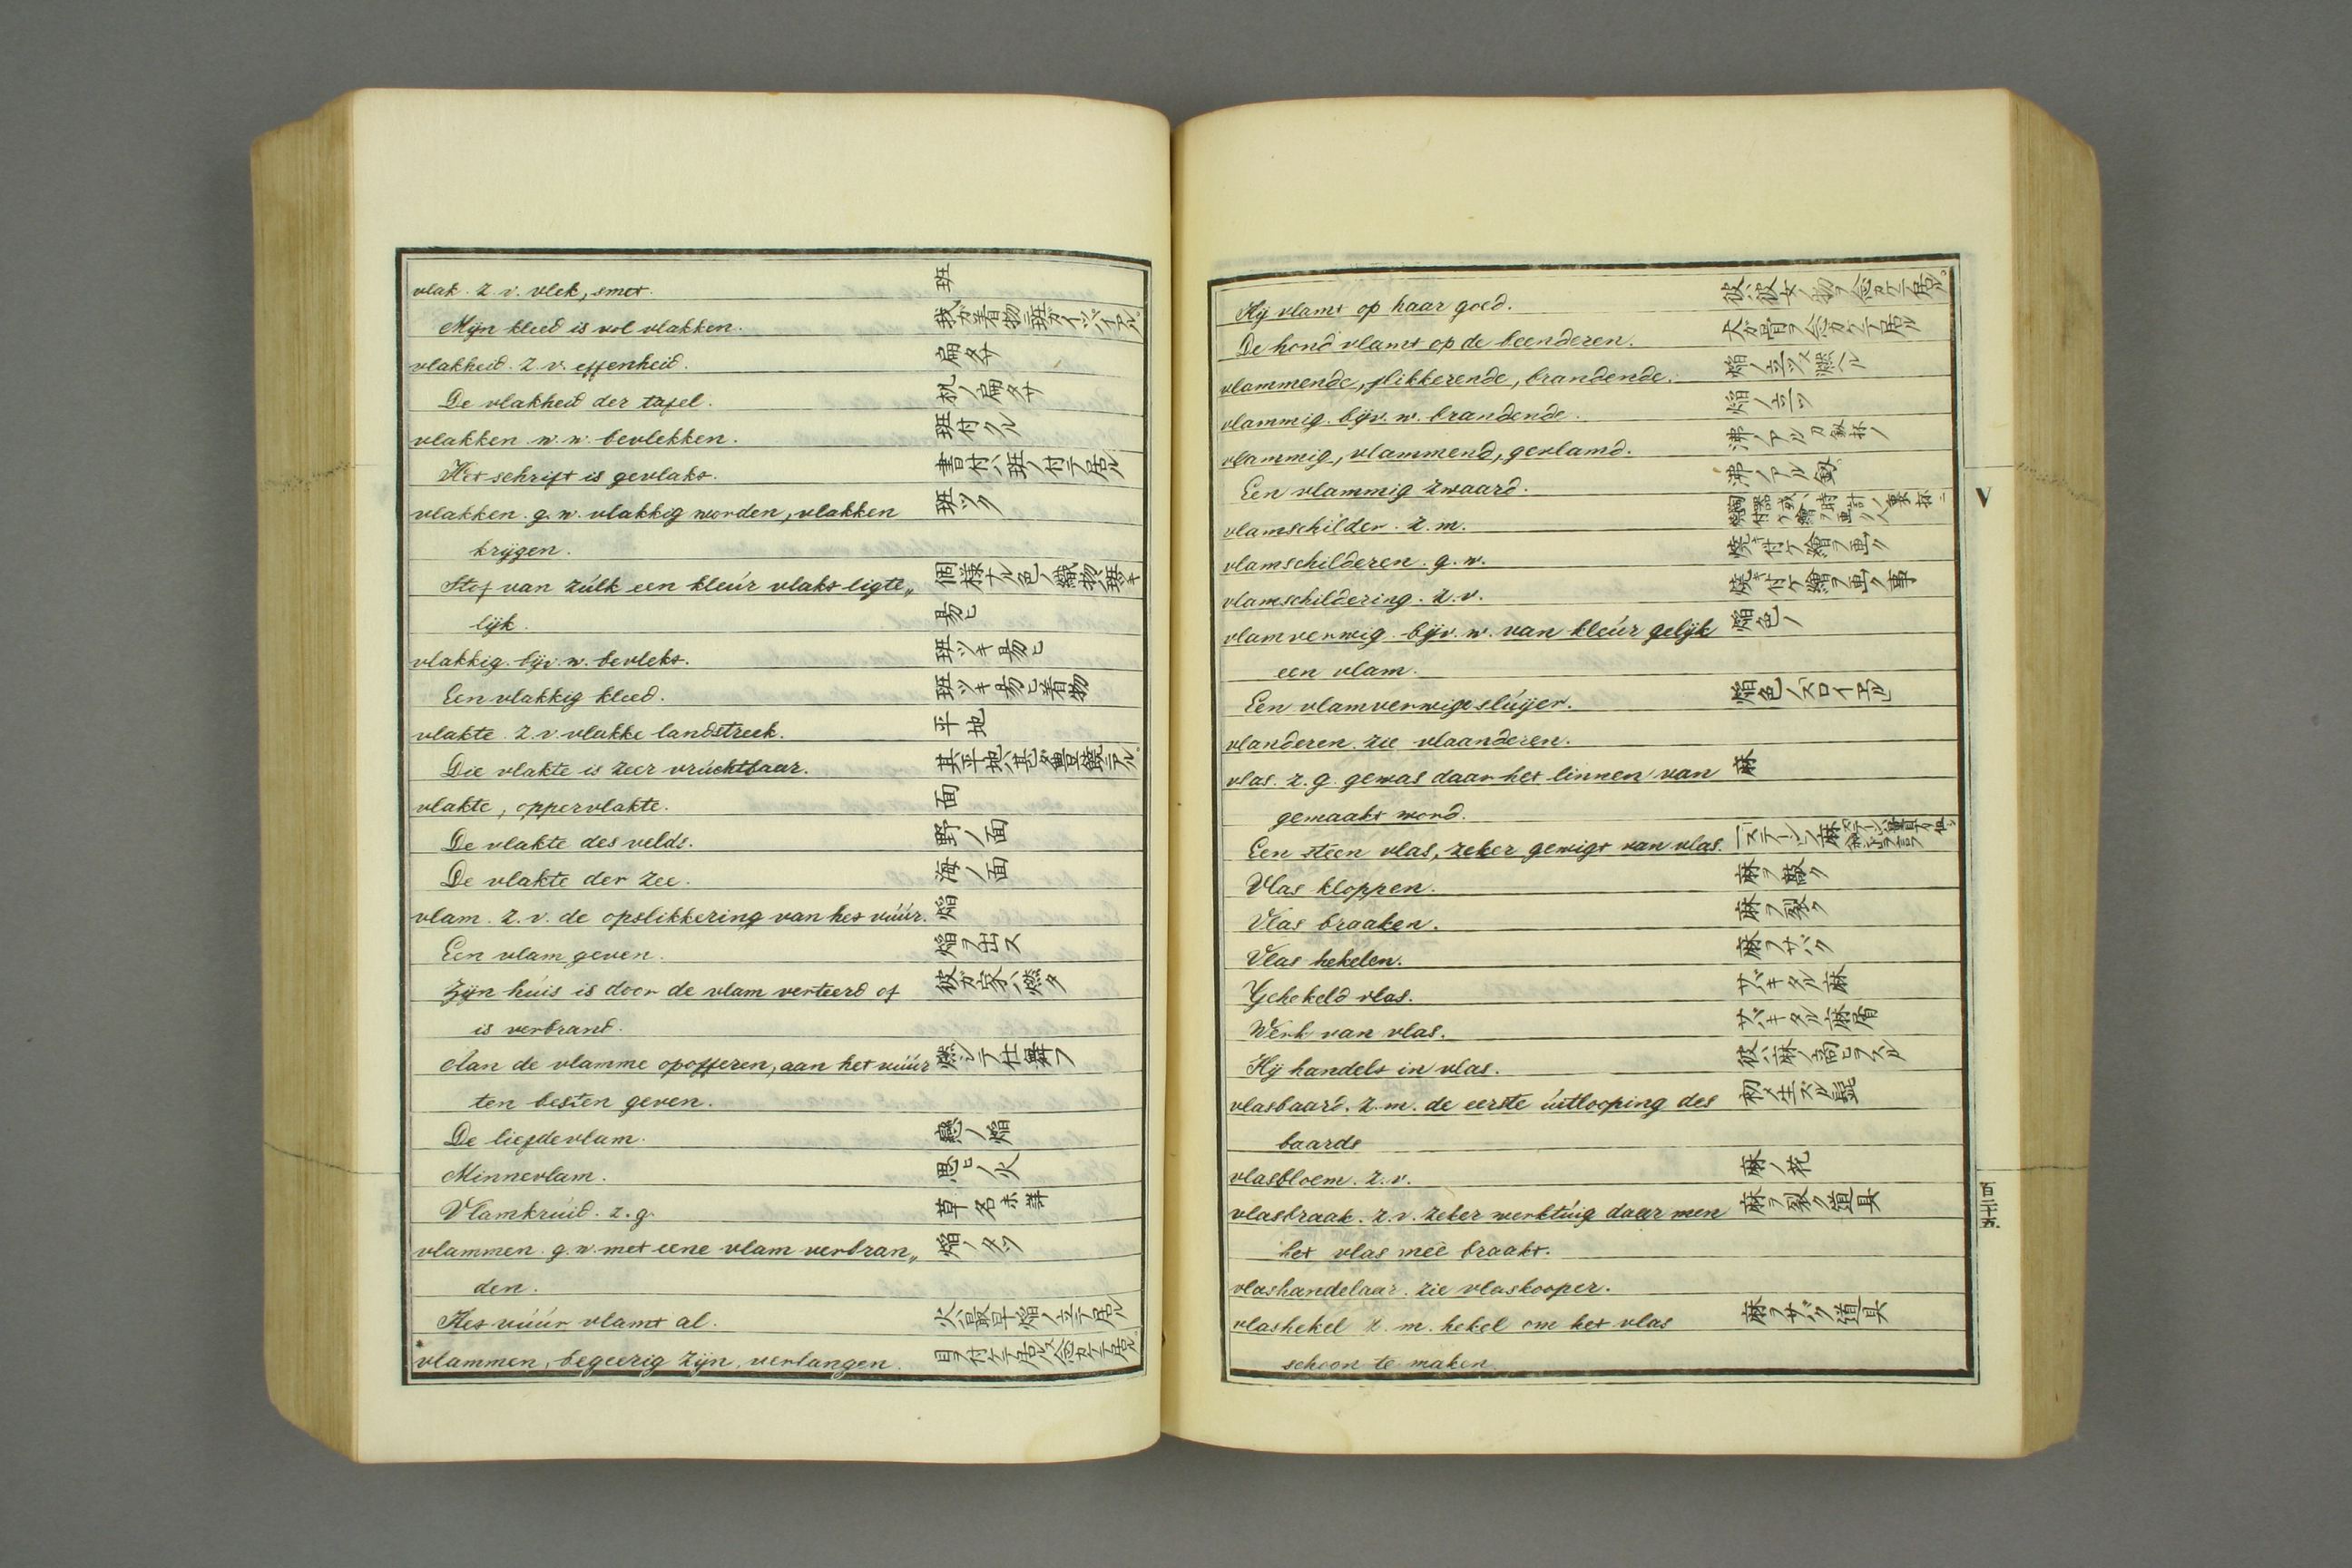 vlak. z.v. vlek, smet. 斑
Mijn kleed is vol vlakken. 我ガ着物ハ斑ガイッパイアル
vlakheid. z.v. effenheid. 扁タサ
De vlakheid der tafel. 机ノ扁タサ
vlakken w.w. bevlekken. 斑付クル
Het schrift is gevlakt. 書付ハ斑ノ付テ居ル
vlakken. g.w. vlakkig worden, vlakken 斑ツク
krijgen.
Stof van zúlk een kleúr vlakt ligte„ 個様ナル色ノ織物ハ斑ツキ
lijk. 易ヒ
vlakkig. bijv. w. bevlekt. 斑ツキ易ヒ
Een vlakkig kleed. 斑ツキ易ヒ着物
vlakte. z.v. vlakke landstreek. 平地
Die vlakte is zeer vrúchtbaar. 其平地ハ甚ダ豊饒テアル
vlakte, oppervlakte. 面
De vlakte des velds. 野ノ面
De vlakte der zee. 海ノ面
vlam. z.v. de opslikkering van het vúúr. 焔
Een vlam geven. 焔ヲ出ス
Zijn húis is door de vlam verteerd of 彼ガ家ハ燃タ
is verbrand.
Aan de vlamme opofferen, aan het vúúr 燃シテ仕舞フ
ten besten geven.
De liefdevlam. 戀ノ焔
Minnevlam. 思ヒノ火
Vlamkrúid. z.g. 草名未詳
vlammen. g.w. met eene vlam verbran„ 焔ノタツ
den.
Het vúúr vlamt al. 火ハ最早焔ノ立テ居ル
vlammen, begeerig zijn, verlangen. 目ヲ付ケテ居ル又念カケテ居ル
Hij vlamt op haar goed. 彼ハ彼女ノ物ヲ念カケテ居ル
De hond vlamt op de beenderen. 犬ガ骨ヲ念カケテ居ル
vlammende, flikkerende, brandende. 焔ノ立ツ又燃ヘル
vlammig. bijv. w. brandende. 焔ノ立ツ
vlammig, vlammend, gevlamd. 沸ノアル刀劔抔ノ
Een vlammig zwaard. 沸ノアル劔
vlamschilder. z.m. 陶器或ハ時計ノ裏抔ニ焼付ケ繪ヲ画ク人
vlamschilderen. g.w. 焼キ付ケ繪ヲ画ク
vlamschildering. z.v. 焼キ付ケ繪ヲ画ク事
vlamverwig. bijv. w. van kleúr gelijk 焔色ノ
een vlam.
Een vlamverwige slúijer. 焔色ノスロイエル
vlanderen. zie vlaanderen.
vlas. z.g. gewas daar het linnen van 麻
gemaakt word.
Een steen vlas, zeker gewigt van vlas. 一ステーンノ麻
Vlas kloppen. 麻ヲ敲ク
Vlas braaken. 麻ヲ裂ク
Vlas hekelen. 麻ヲサバク
Gehekeld vlas. サバキタル麻
Werk van vlas. サバキタル麻屑
Hij handelt in vlas. 彼ハ麻ノ商ヒヲスル
vlasbaard. z.m. de eerste úitlooping des 初メ生ズル髭
baards
vlasbloem. z.v. 麻ノ花
vlasbraak. z.v. zeker werktúig daar men 麻ヲ裂ク道具
het vlas meê braakt.
vlashandelaar. zie vlaskooper.
vlashekel z.m. hekel om het vlas 麻ヲサバク道具
schoon te maken.
V
百二十五